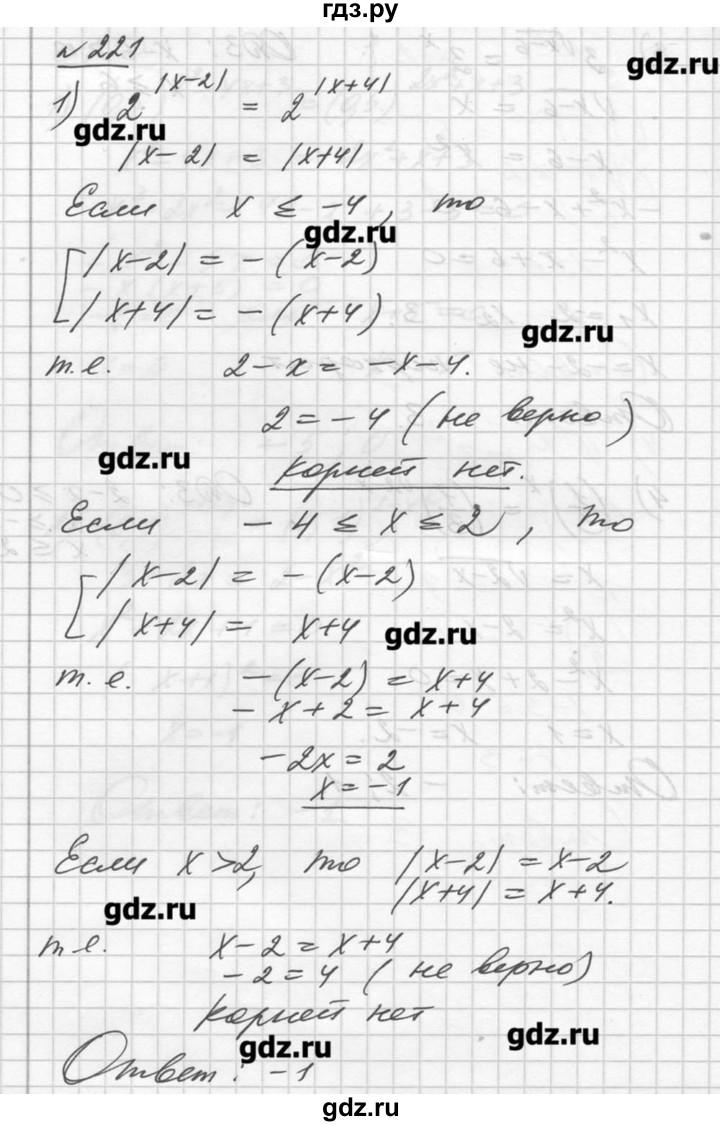 гдз.ру
№ 221
gdz.ru
1) 2^|x-2| = 2^|x+4|
gdz.ru
|x-2| = |x+4|
Если x ≤ -4, то
gdz.ru
|x-2| = -(x-2)
|x+4| = -(x+4)
gdz.ru
т.е. 2-x = -x-4.
2 = -4 (не верно)
gdz.ru
корней нет.
Если -4 ≤ x ≤ 2, то
|x-2| = -(x-2)
|x+4| = x+4
gdz.ru
т.е. -(x-2) = x+4
-x+2 = x+4
-2x = 2
x = -1
Если x > 2, то |x-2| = x-2
|x+4| = x+4.
gdz.ru
т.е. x-2 = x+4
-2 = 4 (не верно)
корней нет
gdz.ru
gdz.ru
Ответ: -1
gdz.ru